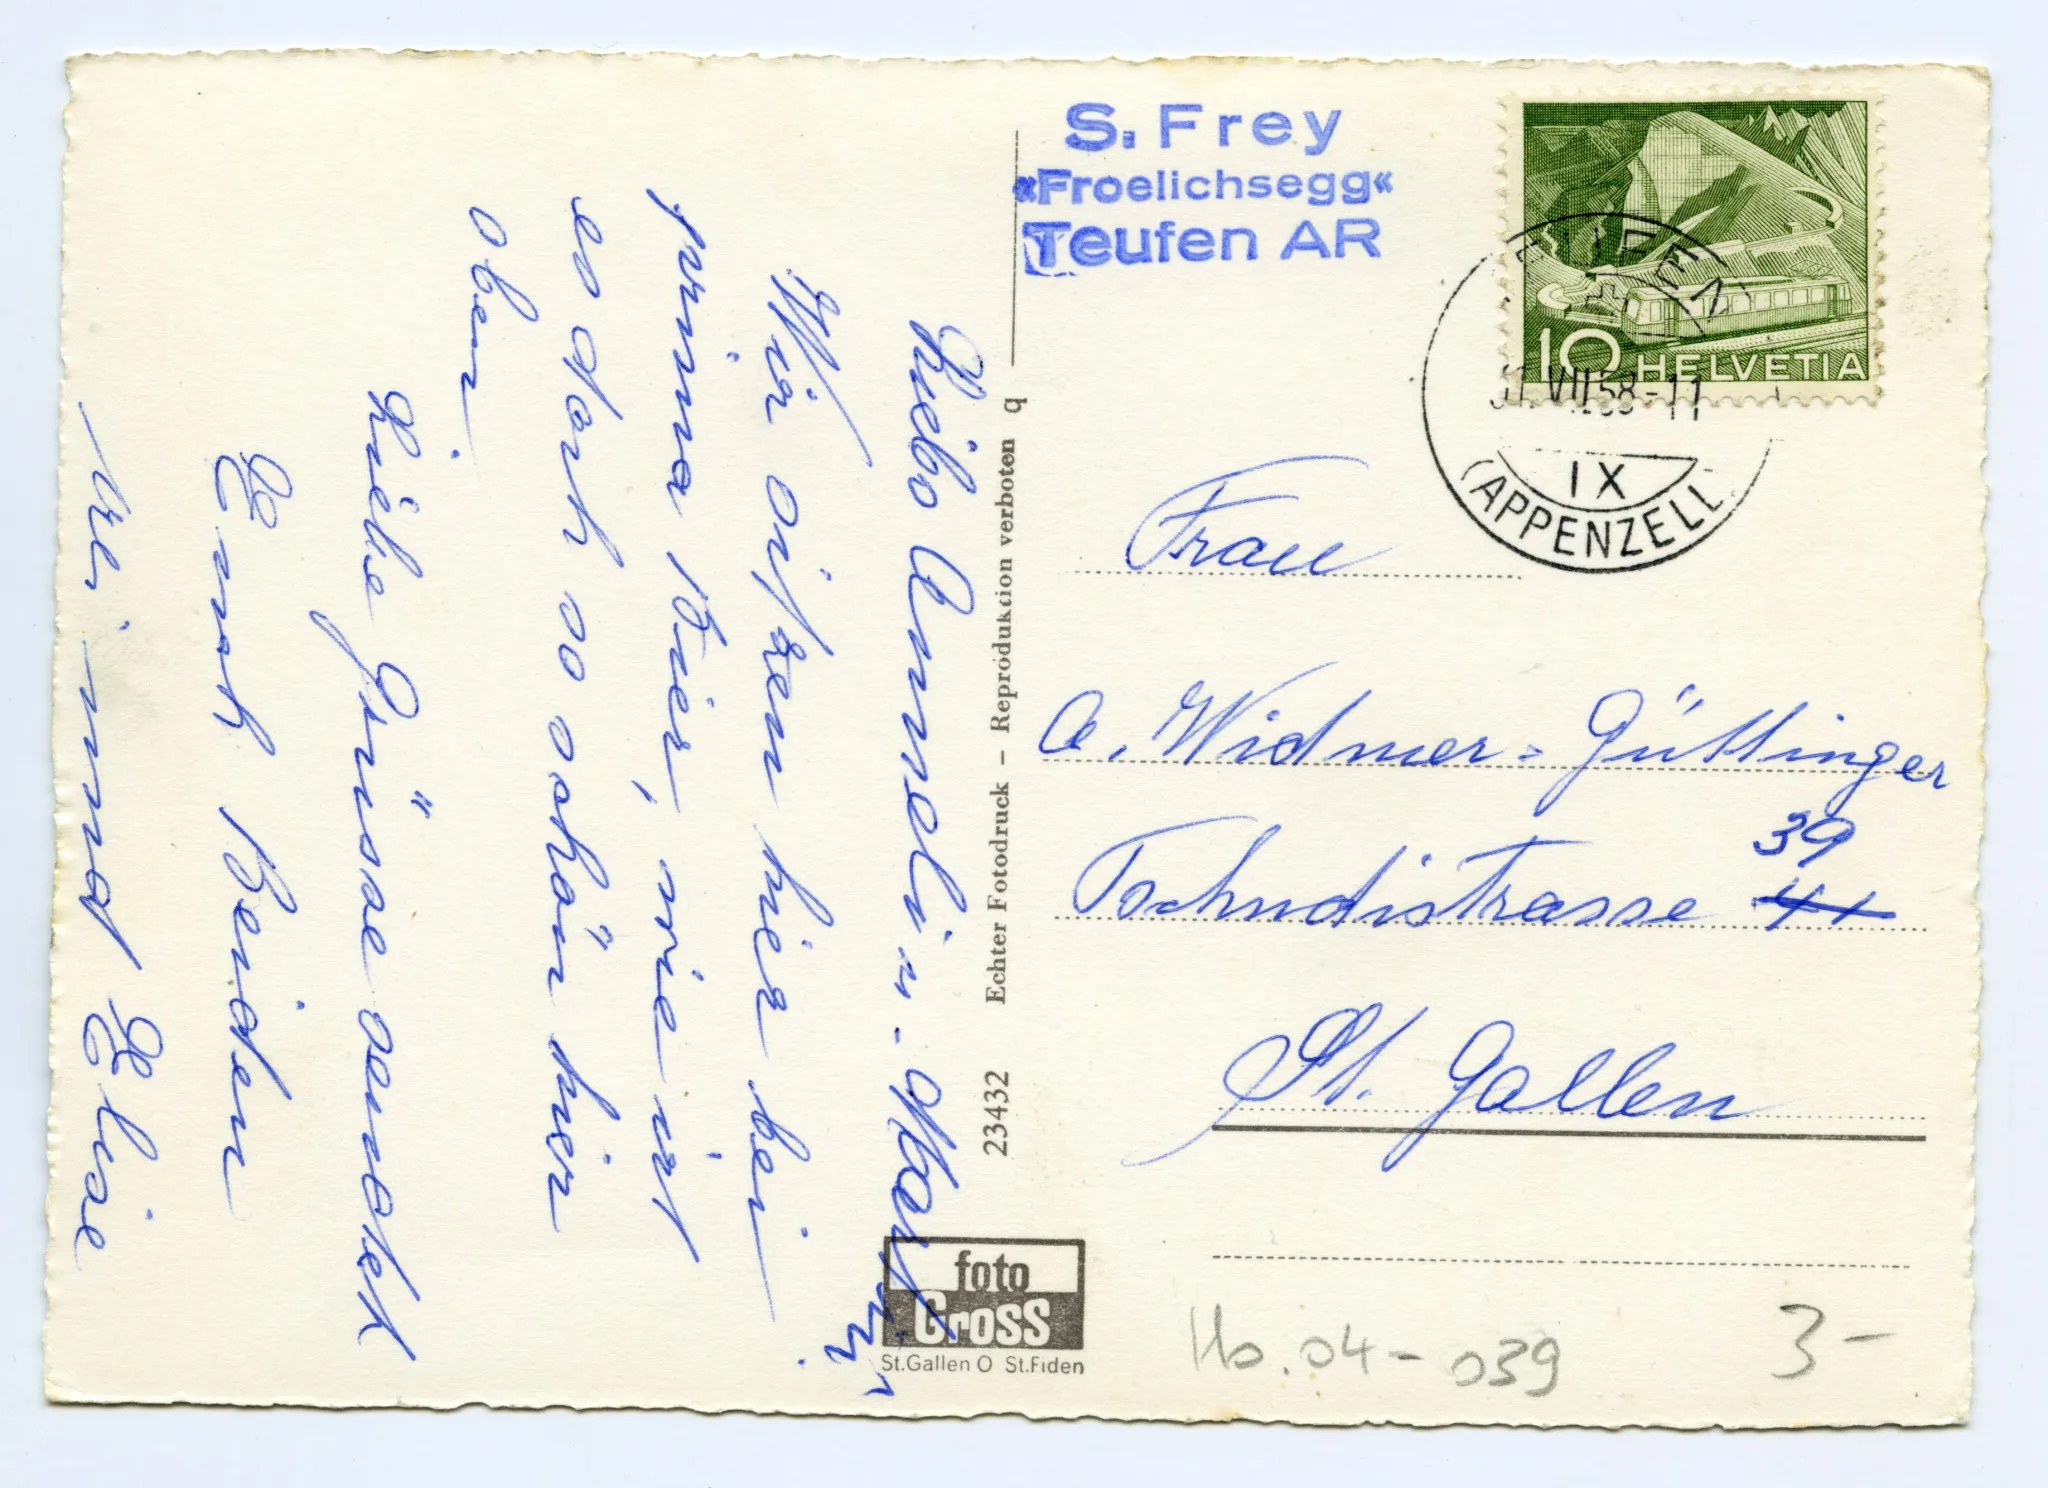 Liebe Anneli u. Martin
Wir sitzen hier bei
prima Bier, wie ist
es doch so schön hier
oben
Liebe Grüsse sendet
Euch Beiden
Ueli und Elsie
S. Frey
«Froelichsegg«
Teufen AR
10 HELVETIA
TEUFEN
31.VII.58-11
IX
(APPENZELL
Frau
A. Widmer-Güttinger
39
Tschudistrasse 41
St. Gallen
23432 Echter Fotodruck – Reproduktion verboten q
foto
Gross
St.Gallen O St.Fiden
Ho.04-039
3-